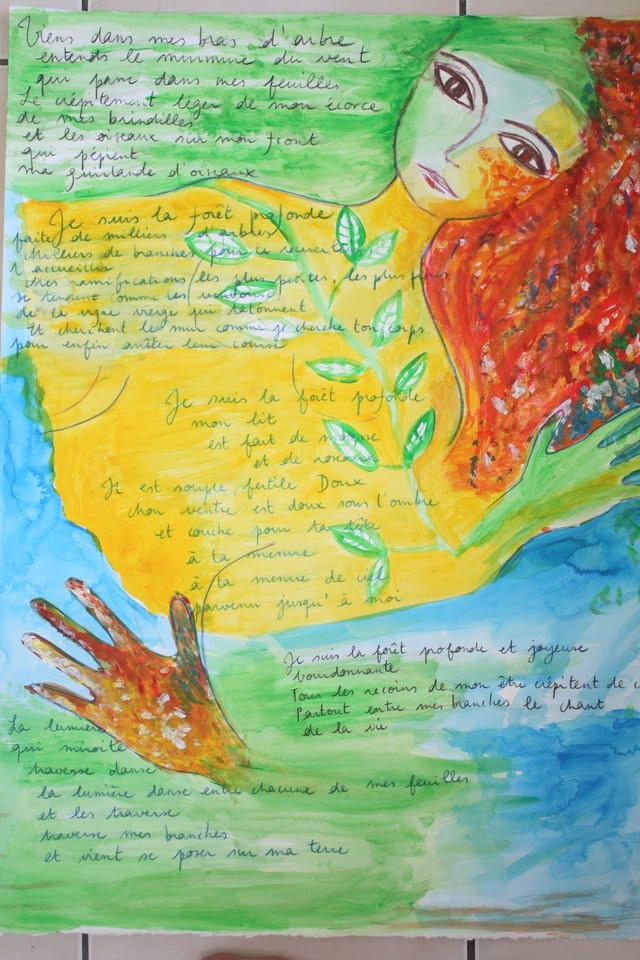 Viens dans mes bras d'arbre
entends le murmure du vent
qui passe dans mes feuilles
Le crépitement léger de mon écorce
de mes brindilles
et les oiseaux sur mon front
qui pépient
ma guirlande d'oiseaux
Je suis la forêt profonde
faite de milliers d'arbres
milliers de branches pour te recueillir
t'accueillir
mes ramifications les plus petites, les plus fines
se tendent comme les
de la vigne vierge qui tâtonnent
Et cherchent le mur comme je cherche ton corps
pour enfin arrêter leur course
Je suis la forêt profonde
mon lit
est fait de mousse
et de roseaux
Il est souple, fertile Doux
mon ventre est doux sous l'ombre
et couche pour ta tête
à ta mesure
à ta mesure de ciel
parvenu jusqu'à moi
Je suis la forêt profonde et joyeuse
bourdonnante
Tous les recoins de mon être crépitent de
Partout entre mes branches le chant
de la vie
La lumière
qui miroite
traverse danse
la lumière danse entre chacune de mes feuilles
et les traverse
traverse mes branches
et vient se poser sur ma terre